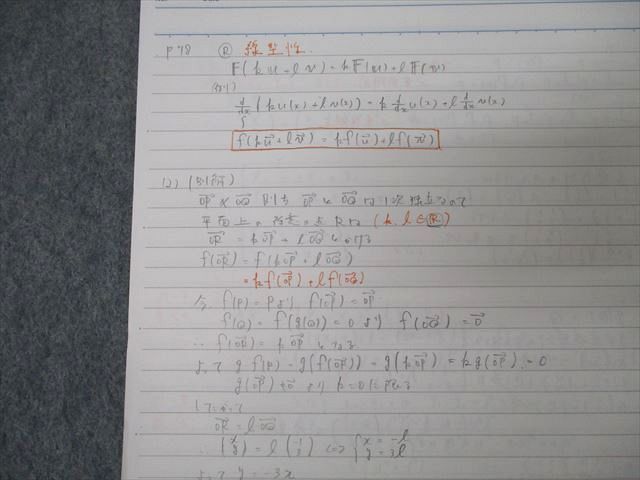 P78 Ⓡ 線型性.
F(ku + lv) = kF(u) + lF(v)
(例)
d/dx (ku(x) + lv(x)) = k d/dx u(x) + l d/dx v(x)
f(ku⃗ + lv⃗) = kf(u⃗) + lf(v⃗)
(2) (別解)
OP⃗ ∦ OQ⃗ 即ち OP⃗ と OQ⃗ は1次独立なので
平面上の任意の点Rは (k, l ∈ ℝ)
OR⃗ = kOP⃗ + lOQ⃗ とかける
f(OR⃗) = f(kOP⃗ + lOQ⃗)
= kf(OP⃗) + lf(OQ⃗)
今 f(P) = P より f(OP⃗) = OP⃗
f(Q) = f(g(Q)) = 0 より f(OQ⃗) = 0⃗
∴ f(OR⃗) = kOP⃗ となる
よって g f(R) = g(f(OR⃗)) = g(kOP⃗) = kg(OP⃗) = 0
g(OP⃗) ≠ 0⃗ より k = 0
したがって
OR⃗ = lOQ⃗
∴ (x y) = l (-1 3) ⇔ { x = -l y = 3l
よって y = -3x